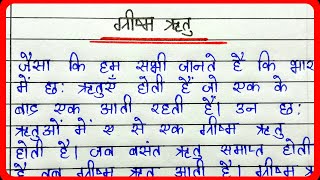 ग्रीष्म ऋतु
जैसा कि हम सभी जानते है कि भार
में छः ऋतुएँ होती हैं जो एक के
बाद एक आती रहती हैं। उन छः
ऋतुओं में ए से एक ग्रीष्म ऋतु
होती है। जब बसंत ऋतु समाप्त होती
है तब ग्रीष्म ऋतु आती है। ग्रीष्म ऋ